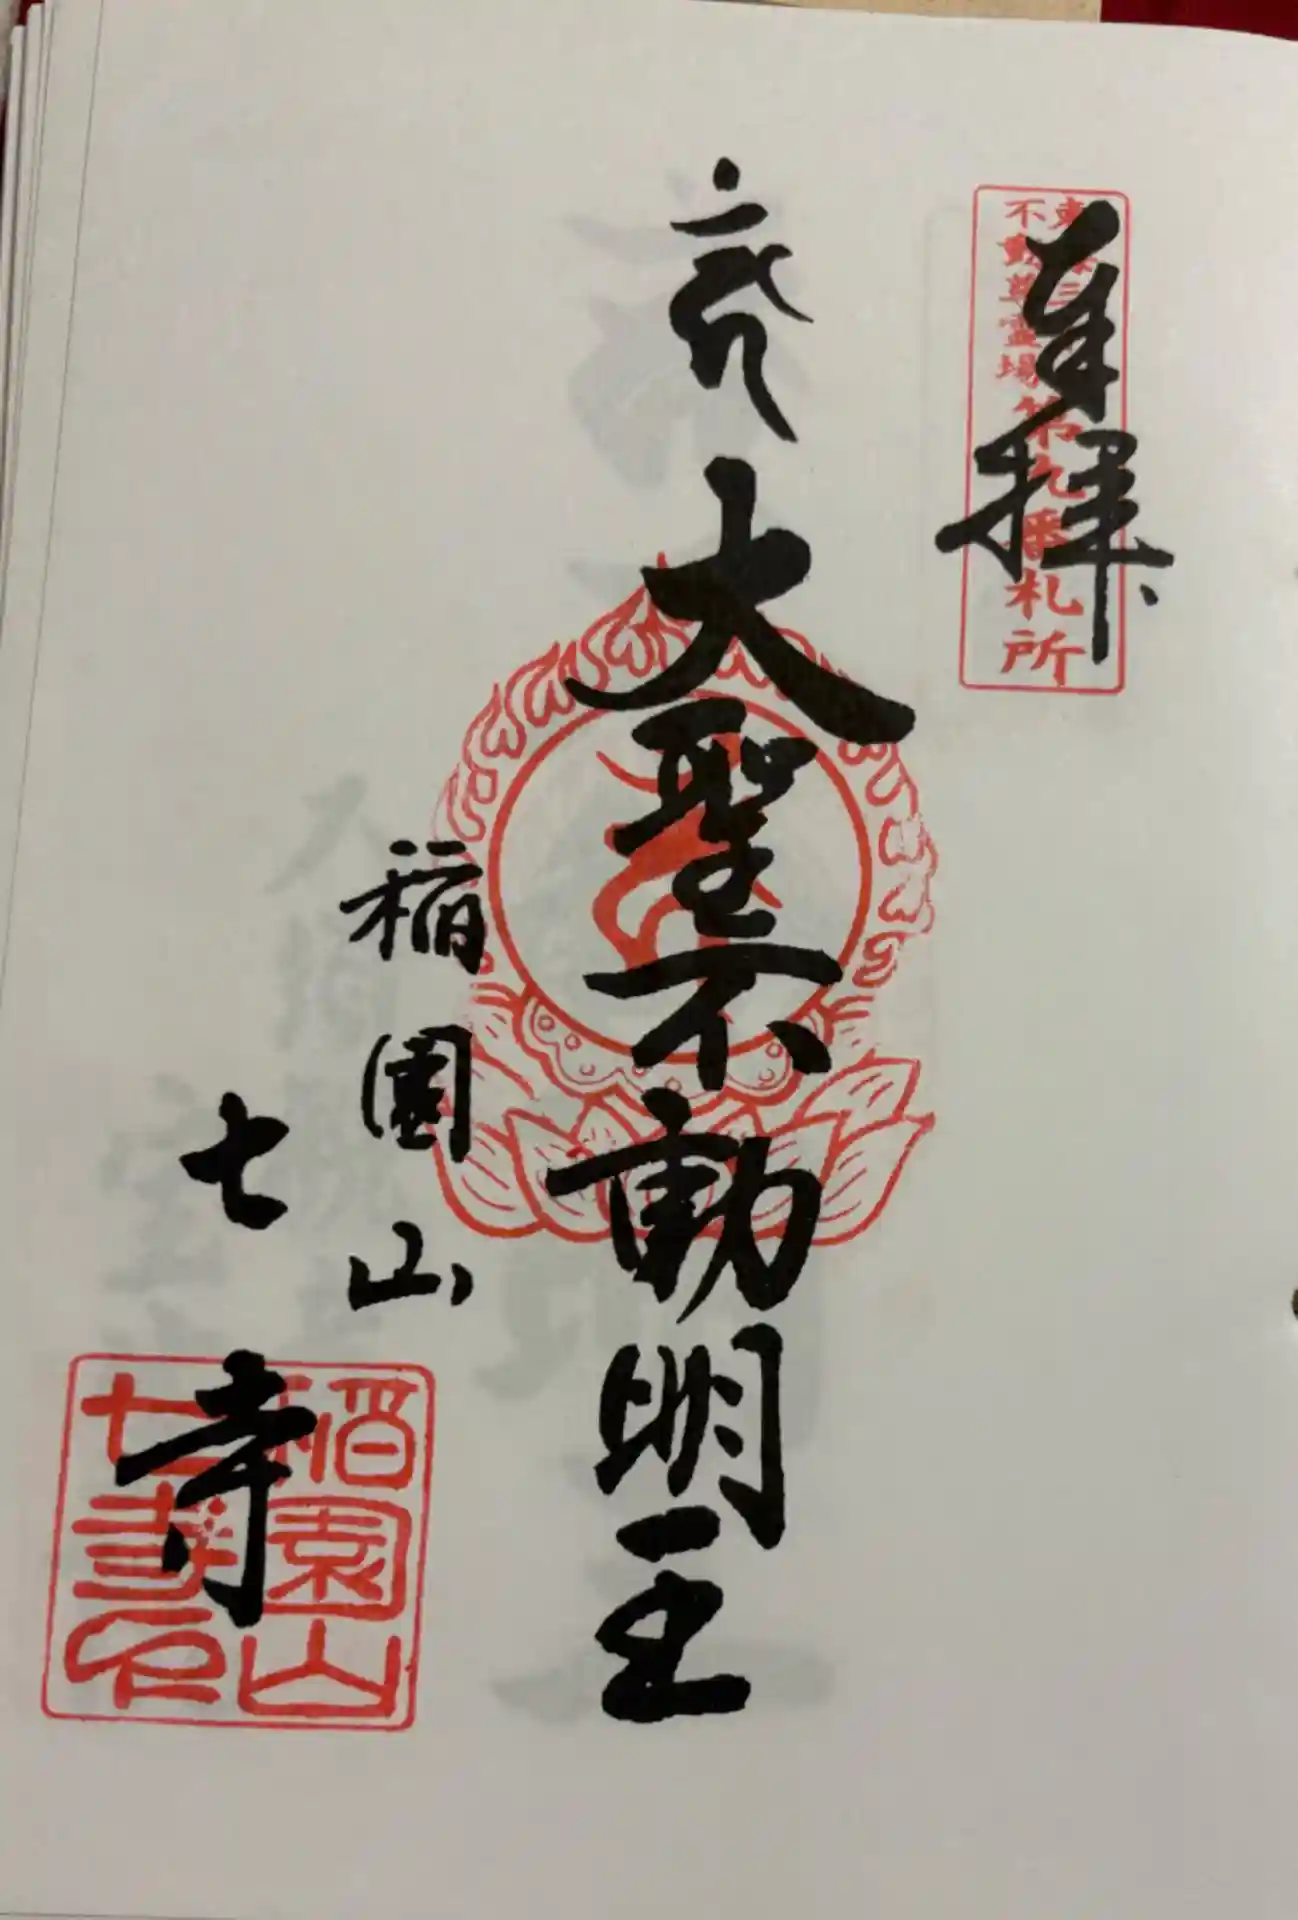 奉拝
東海三
不動尊霊場
第九番札所
大聖不動明王
稲園山
七寺
稲園山
七寺印